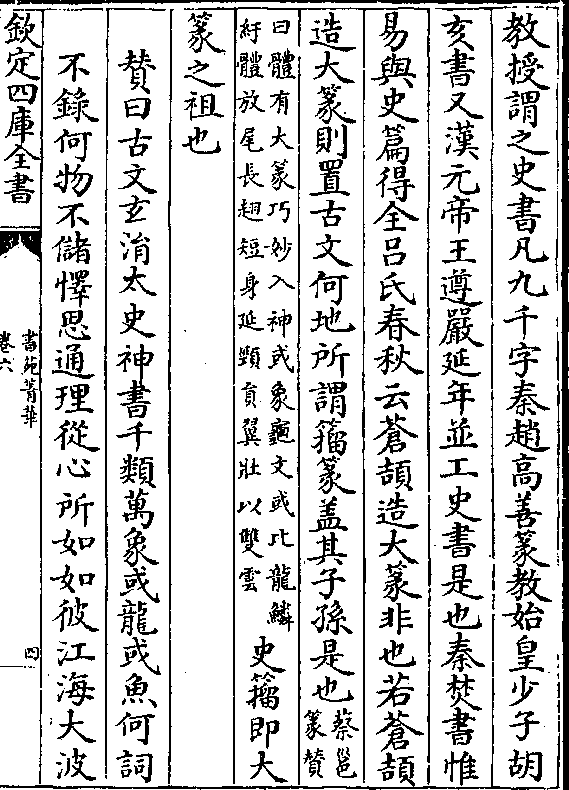 教授謂之史書凡九千字秦趙高善篆教始皇少子胡
亥書又漢元帝王遵嚴延年並工史書是也秦焚書惟
易與史篇得全吕氏春秋云蒼頡造大篆非也若蒼頡
造大篆則置古文何地所謂籀篆盖其子孫是也蔡邕篆賛
曰體有大篆巧妙入神或象龜文或比龍鱗
紆體放尾長翅短身延頸負翼壯以雙雲
史籀即大
篆之祖也
賛曰古文玄㳙太史神書千類萬象或龍或魚何詞
不錄何物不儲懌思通理從心所如如彼江海大波
欽定四庫全書
書苑菁華
卷六
四